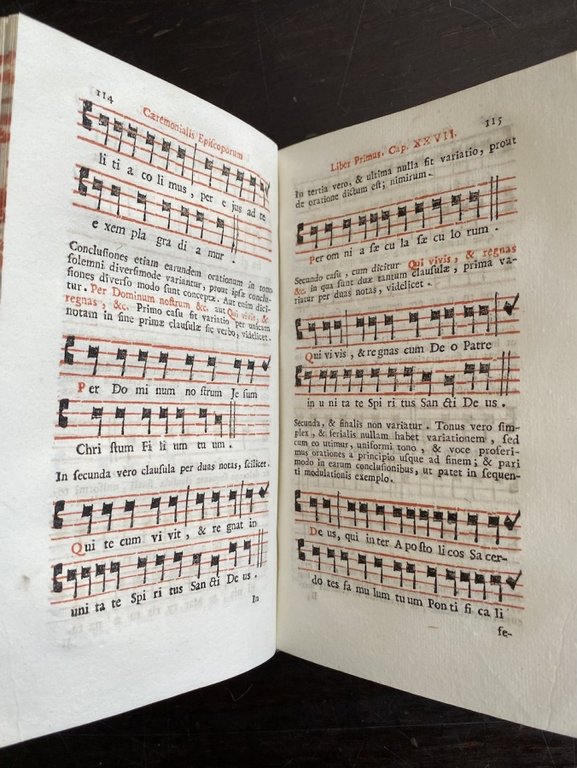 114
Cæremonialis Episcoporum
li ti a co li mus, per e jus ad te
e xem pla gra di a mur.
Conclusiones etiam earundem orationum in tono
solemni diversimode variantur, prout ipsæ conclu-
siones diverso modo sunt conceptæ. Aut enim dici-
tur. Per Dominum nostrum &c. aut Qui vivis, &
regnas, &c. Primo casu fit variatio per unicam
notam in fine primæ clausulæ sic verbo, videlicet.
Per Do mi num no strum Je sum
Chri stum Fi li um tu um.
In secunda vero clausula per duas notas, scilicet.
Qui te cum vi vit, & re gnat in
uni ta te Spi ri tus San cti De us.
In
Liber Primus. Cap. XXVII.
115
In tertia vero, & ultima nulla fit variatio, prout
de oratione dictum est; nimirum.
Per om ni a sæ cu la sæ cu lo rum.
Secundo casu, cum dicitur Qui vivis, & regnas
&c. in qua sunt duæ tantum clausulæ, prima va-
riatur per duas notas, videlicet.
Qui vi vis, & re gnas cum De o Patre
in u ni ta te Spi ri tus San cti De us.
Secunda, & finalis non variatur. Tonus vero sim-
plex, & ferialis nullam habet variationem, sed
cum eo utimur, uniformi tono, & voce proferi-
mus orationes a principio usque ad finem; & pari
modo in earum conclusionibus, ut patet in sequen-
ti modulationis exemplo.
De us, qui in ter A po sto li cos Sa cer-
do tes fa mu lum tu um Pon ti fi ca li
fe-